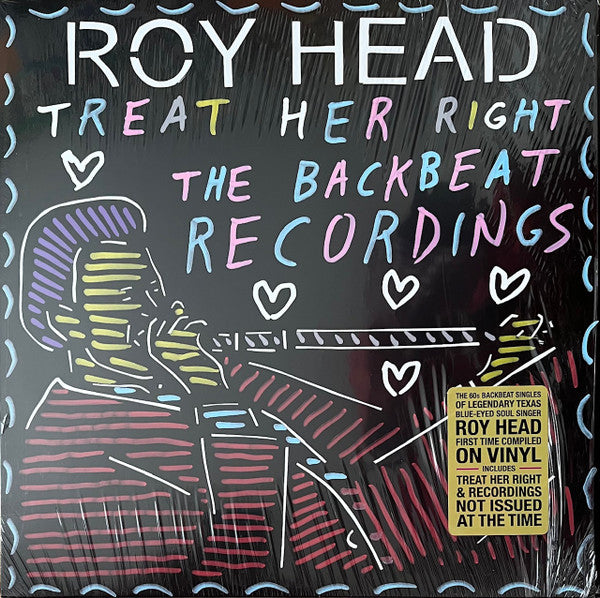 ROY HEAD
TREAT HER RIGHT
THE BACKBEAT
RECORDINGS
THE 60s BACKBEAT SINGLES
OF LEGENDARY TEXAS
BLUE-EYED SOUL SINGER
ROY HEAD
FIRST TIME COMPILED
ON VINYL
INCLUDES
TREAT HER RIGHT
& RECORDINGS
NOT ISSUED
AT THE TIME